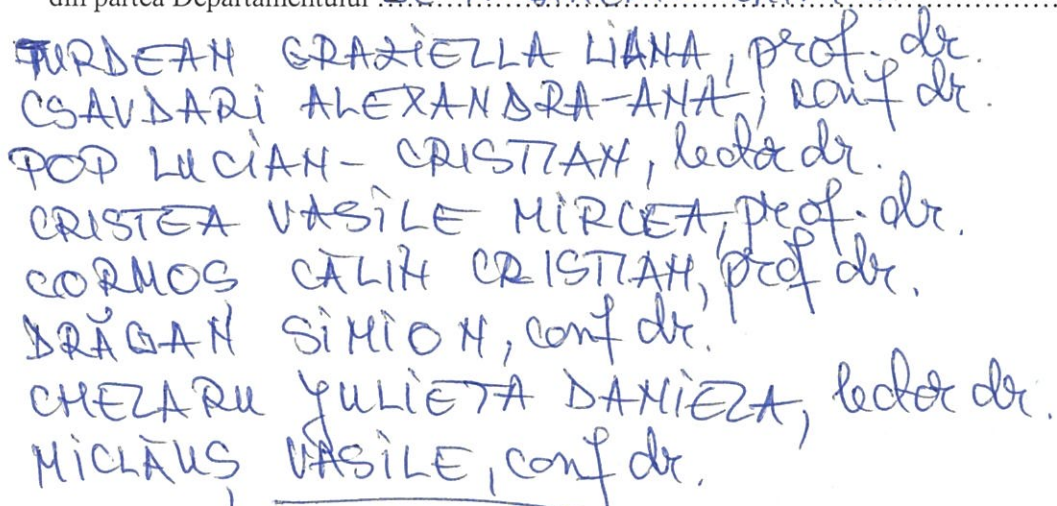 din partea Departamentului
TURDEAN GRAZIELLA LIANA, prof. dr.
CSAVDARI ALEXANDRA-ANA, conf dr.
POP LUCIAN-CRISTIAN, lector dr.
CRISTEA VASILE MIRCEA, prof. dr.
CORMOS CĂLIN CRISTIAN, prof dr.
DRĂGAN SIMION, conf dr.
CHELARU JULIETA DANIELA, lector dr.
MICLĂUȘ VASILE, conf dr.